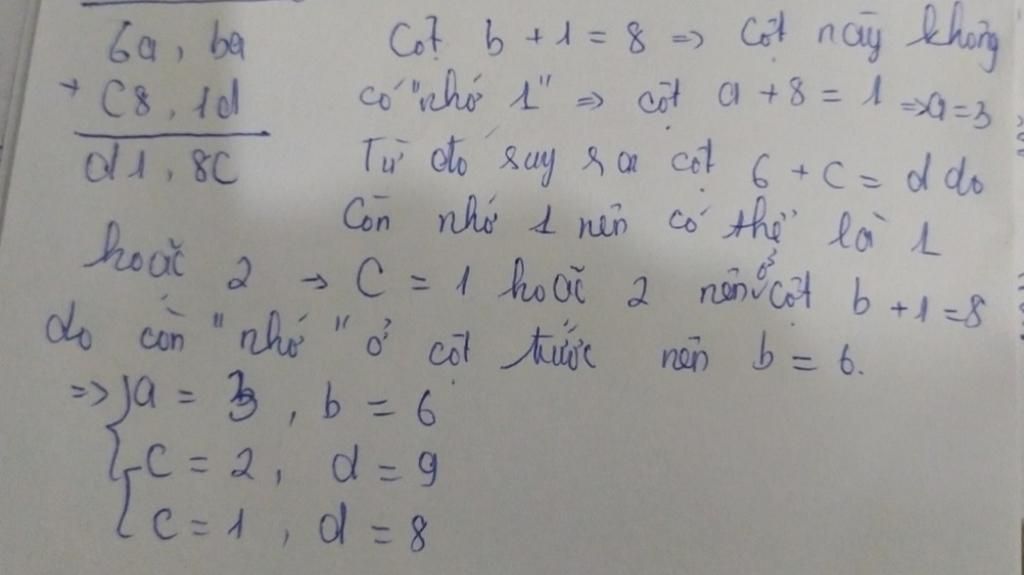 6a, ba
+ C8, 1d
d1, 8C
Cột b + 1 = 8 => Cột này không
có "nhớ 1" => cột a + 8 = 1 => a = 3
Từ đó suy ra cột 6 + c = d do
Còn nhớ 1 nên có thể là 1
hoặc 2 → C = 1 hoặc 2 nên ở cột b + 1 = 8
do còn "nhớ" ở cột trước nên b = 6.
=> { a = 3, b = 6
{ C = 2, d = 9
{ C = 1, d = 8